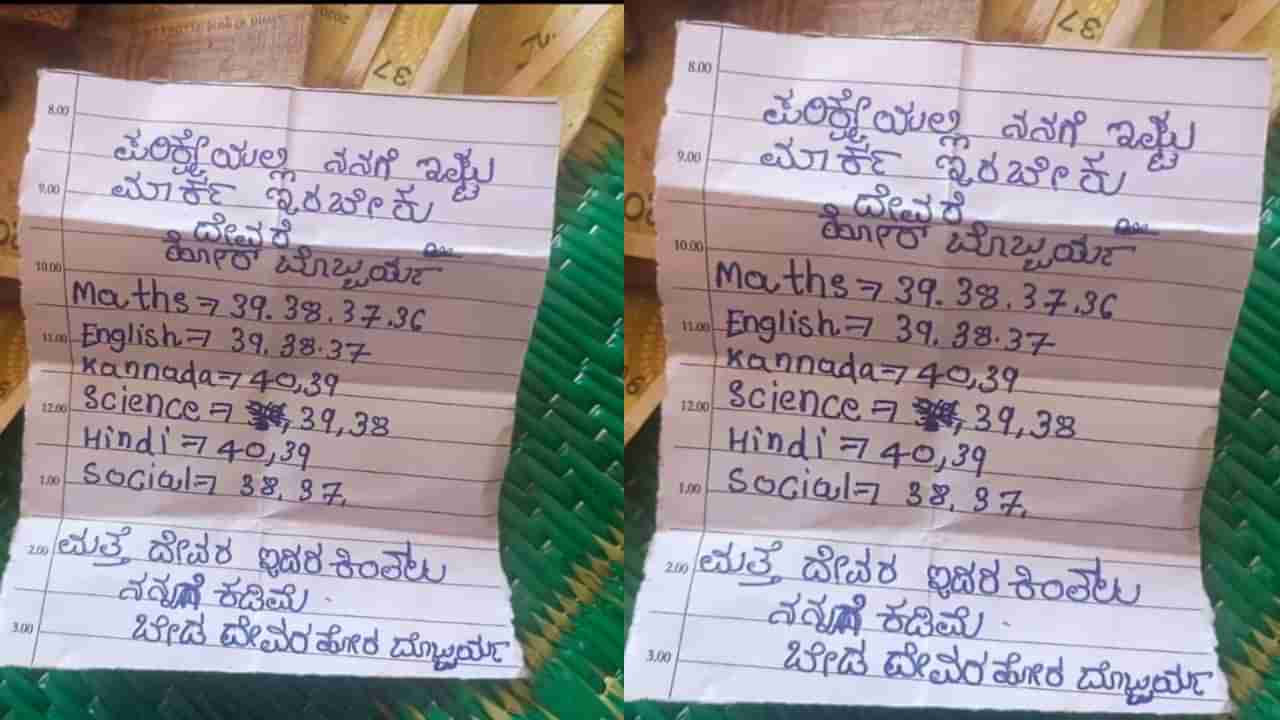 8.00
ಪರಿಕ್ಷೇಯಲ್ಲಿ ನನಗೆ ಇಷ್ಟು
9.00
ಮಾರ್ಕ್ ಇರಬೇಕು
ದೇವರೆ
ಹೋರ್
10.00
Maths⇒ 39.38.37.36
11.00
English⇒ 39.38.37
Kannada⇒ 40,39
12.00
Science⇒ 39,38
Hindi⇒ 40,39
1.00
Social⇒ 38.37.
2.00
ಮತ್ತೆ ದೇವರ ಇದರ ಕಿಂತಲು
ನನ್ನಗೆ ಕಡಿಮೆ .
3.00
ಬೇಡ ದೇವರ ಹೋರ
37
8.00
ಪರಿಕ್ಷೇಯಲ್ಲಿ ನನಗೆ ಇಷ್ಟು
9.00
ಮಾರ್ಕ್ ಇರಬೇಕು
ದೇವರೆ
ಹೋರ್
10.00
Maths⇒ 39.38.37.36
11.00
English⇒ 39.38.37
Kannada⇒ 40,39
12.00
Science⇒ 39,38
Hindi⇒ 40,39
1.00
Social⇒ 38.37.
2.00
ಮತ್ತೆ ದೇವರ ಇದರ ಕಿಂತಲು
ನನ್ನಗೆ ಕಡಿಮೆ .
3.00
ಬೇಡ ದೇವರ ಹೋರ
37